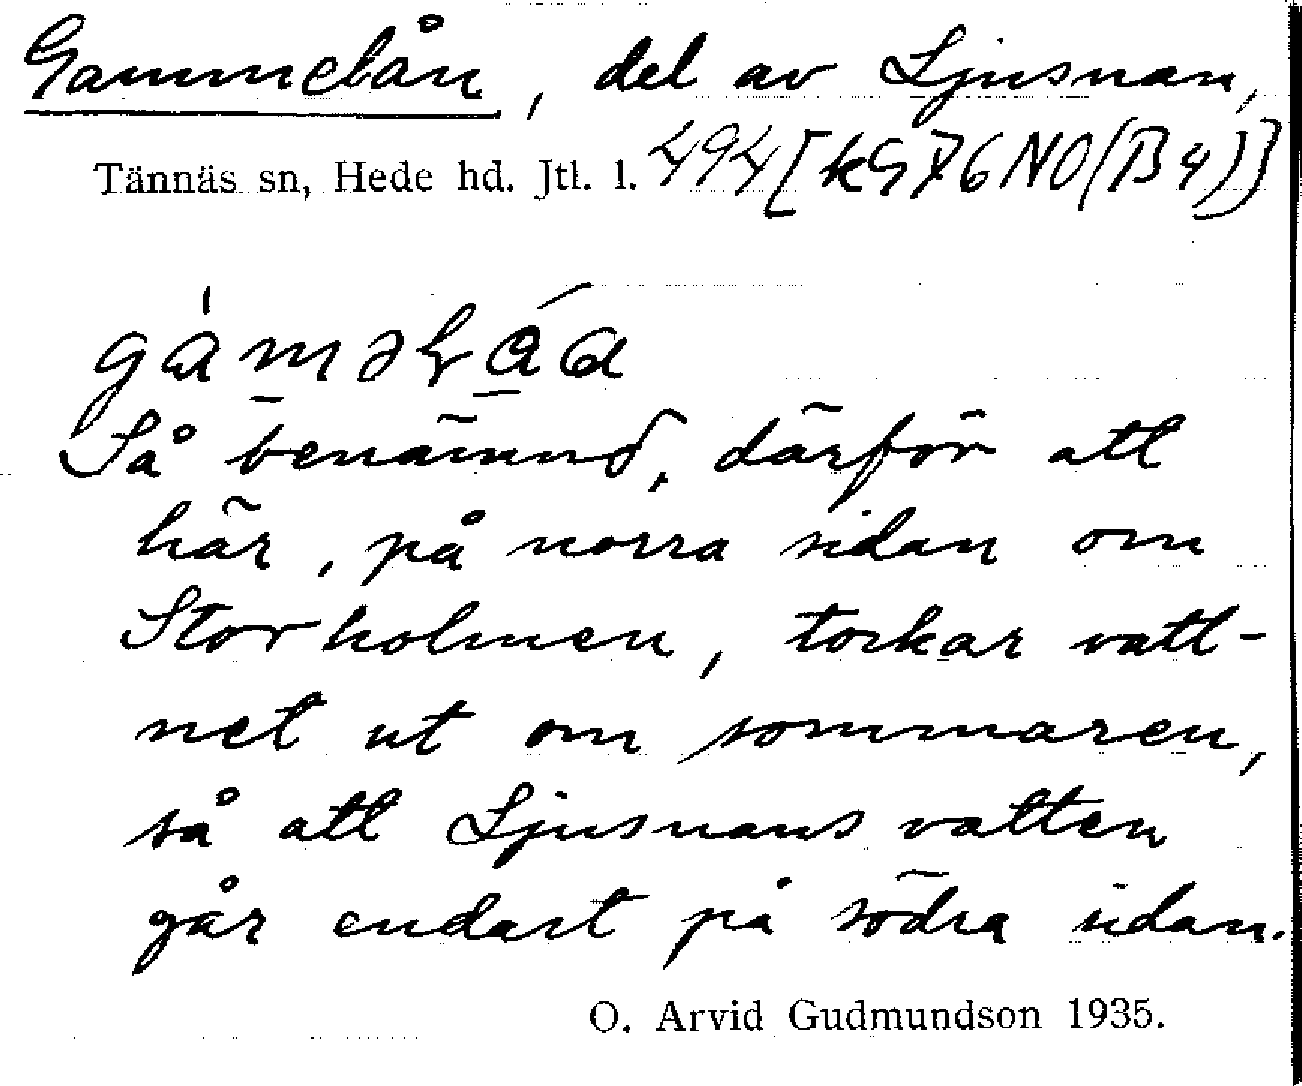 Gammelån, del av Ljusnan,
Tännäs sn, Hede hd. Jtl. l. 494 [k976NO(B4)]
Så benämnd, därför att
här, på norra sidan om
Storholmen, torkar vatt-
net ut om sommaren,
så att Ljusnans vatten
går endast på södra sidan.
O. Arvid Gudmundson 1935.